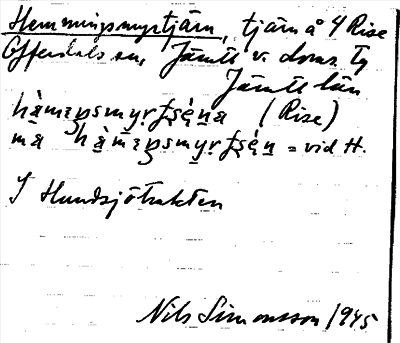 Hemmingsmyrtjärn, tjärn å 4 Rise
Offerdals sn, Jämtl. v. doms. Tg
Jämtl. län
(Rise)
= vid H.
I Hundsjötrakten
Nils Simonsson 1945